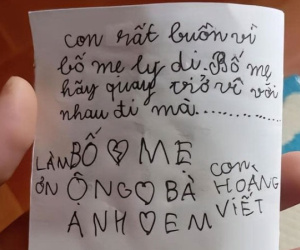 con rất buồn vì
bố mẹ ly dị. Bố mẹ
hãy quay trở về với
nhau đi mà..............
LÀM ƠN
BỐ MẸ
ÔNG BÀ
ANH EM
con HOÀNG VIẾT